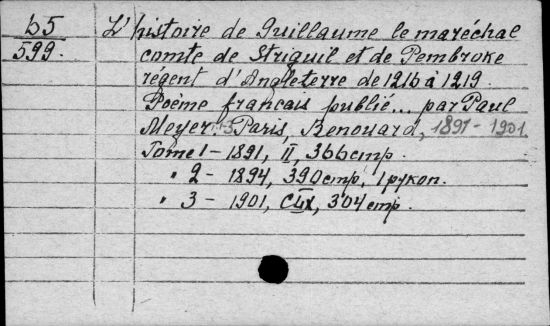 b5
599.
L'histoire de Guillaume le maréchal
comte de Striguil et de Pembroke
régent d'Angleterre de 1216 à 1219
Poème francais publié... par Paul
Meyer. 1-3 Paris, Renouard, 1891-1901
Tome 1 - 1891, II, 366 стр.
" 2 - 1894, 390 стр, 1 рукоп.
" 3 - 1901, CLIX, 304 стр.